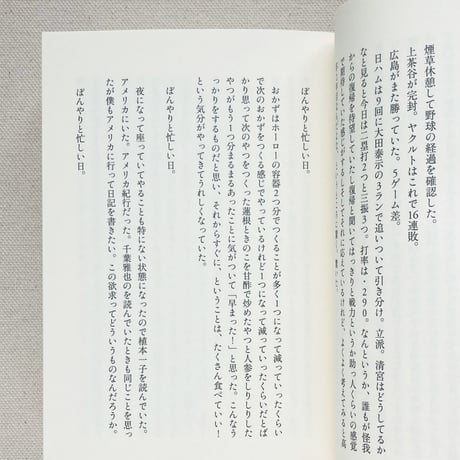 煙草休憩して野球の経過を確認した。
上茶谷が完封。ヤクルトはこれで16連敗。
広島がまた勝っていた。5ゲーム差。
日ハムは9回に大田泰示の3ランで追いついて引き分け。立派。清宮はどうしてるか
なと見ると今日は二塁打2つと三振3つ。打率は・290。なんというか、誰もが怪我
からの復帰を待望していたし復帰と聞いてはっきりと戦力というか助っ人くらいの感覚
で期待していた感じがするしそしてそれに応えているけれど、よくよく考えてみると高
ぼんやりと忙しい日。
おかずはホーローの容器2つ分でつくることが多く1つになって減っていったくらい
で次のおかずをつくる感じでやっているけれど1つになって減っていったくらいだとば
かり思って次のやつをつくった蓮根ときのこを甘酢で炒めたやつと人参をしりしりした
やつがもう1つ分まるまるあったことに気がついて「早まった！」と思った。こんなう
っかりをするものだと思い、それからすぐに、ということは、たくさん食べていい！
という気分がやってきてうれしくなっていた。
ぼんやりと忙しい日。
夜になって座っていてやることも特にない状態になったので植本一子を読んでいた。
アメリカにいた。アメリカ紀行だった。千葉雅也のを読んでいたときも同じことを思っ
たが僕もアメリカに行って日記を書きたい。この欲求ってどういうものなんだろうか。